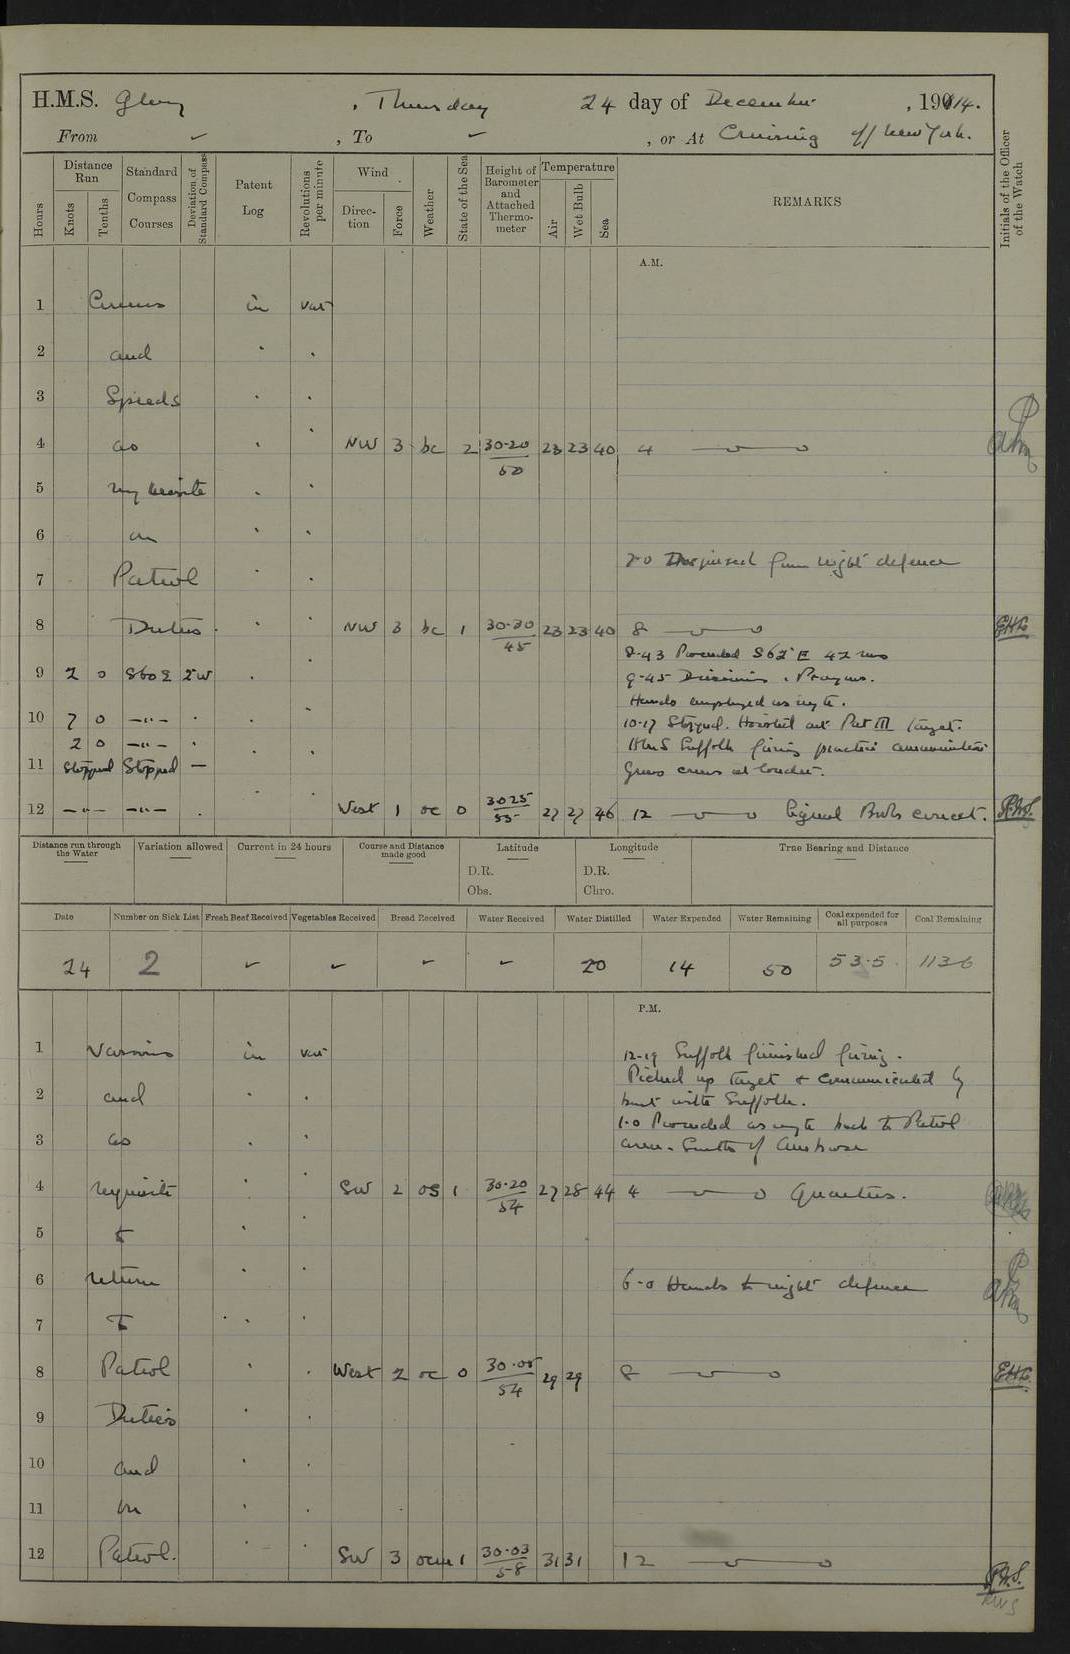 H.M.S. Glory, Thursday 24 day of December, 1914.
From ✓, To ✓, or At Cruising off New York.
Hours
Distance Run
Knots
Tenths
Standard Compass Courses
Deviation of Standard Compass
Patent Log
Revolutions per minute
Wind
Direction
Force
Weather
State of the Sea
Height of Barometer and Attached Thermometer
Temperature
Air
Wet Bulb
Sea
REMARKS
Initials of the Officer of the Watch
A.M.
1 Courses in var
2 and
3 Speeds
4 as NW 3 bc 2 30·20 50 23 23 40 4
5 requisite
6 on
8·0 Dispersed from night defence
7 Patrol
8 Duties. NW 3 bc 1 30·30 45 23 23 40 8 EHL
8-43 Proceeded S62°E 42 revs
9 2 0 S60E 2°W 9-45 Divisions. Prayers.
Hands employed as reqte.
10 7 0 —"— 10-17 Stopped. Hoisted out Patt III target.
2 0 —"— HMS Suffolk firing practice ammunition
11 Stopped Stopped — Guns crews at loader.
12 —"— —"— West 1 oc 0 30 25 55 27 27 46 12 Signal Books correct.
Distance run through the Water
Variation allowed
Current in 24 hours
Course and Distance made good
Latitude
D.R.
Obs.
Longitude
D.R.
Chro.
True Bearing and Distance
Date Number on Sick List Fresh Beef Received Vegetables Received Bread Received Water Received Water Distilled Water Expended Water Remaining Coal expended for all purposes Coal Remaining
24 2 ✓ ✓ ✓ ✓ 20 14 50 53·5 1136
P.M.
1 Various in var 12-19 Suffolk finished firing.
Picked up target & communicated by
2 and boat with Suffolk.
1·0 Proceeded as reqte back to Patrol
3 as area. South of Ambrose
4 requisite SW 2 os 1 30·20 54 27 28 44 4 Quarters.
5 &
6 return 6·0 Hands to night defence
7 to
8 Patrol West 2 oc 0 30·05 54 29 29 8 EHL
9 Duties
10 and
11 on
12 Patrol. SW 3 ocm 1 30·03 58 31 31 12